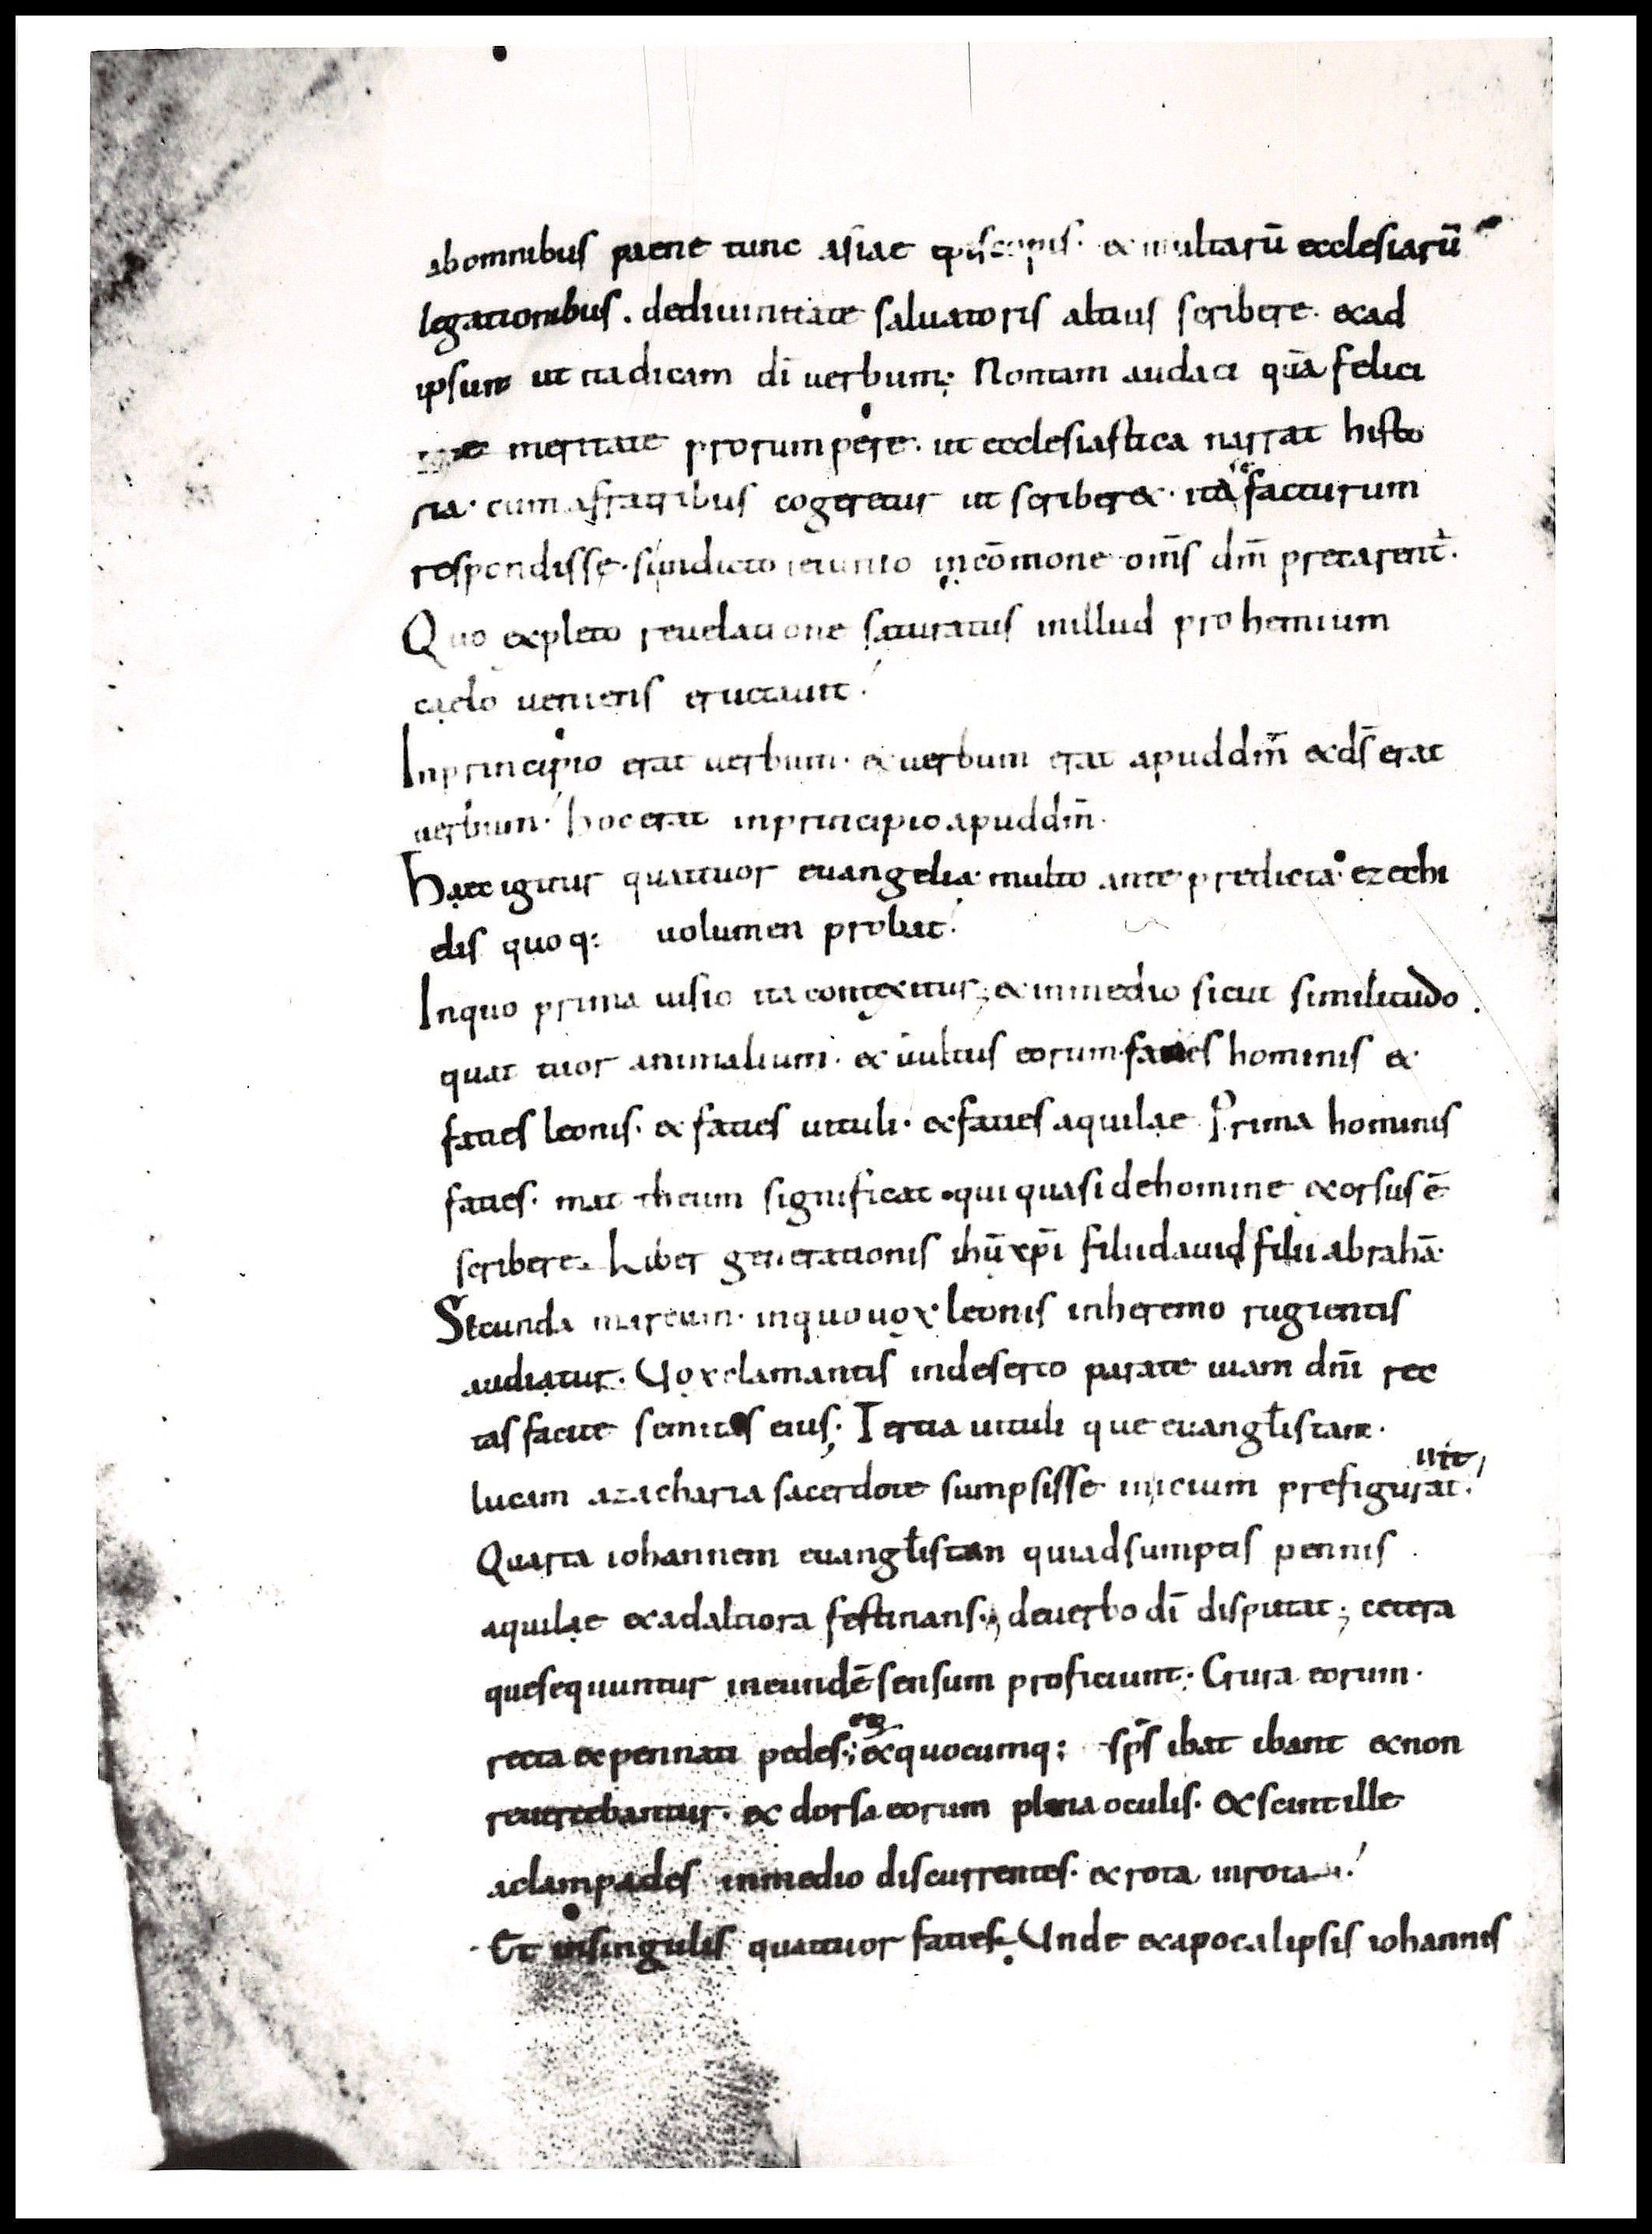 abomnibus paene tunc asiae episcopis· & multarū ecclesiarū
legationibus. dediuinitate saluatoris altius scribere· &ad
ipsum ut itadicam dī uerbum; Nontam audaci quā felici
meritate prorumpere· ut ecclesiastica narrat histo
ria· cum afratribus cogeretur ut scriber&· ita se facturum
respondisse· siindicto ieiunio incōmone om̄s dm̄ precarent̄.
Quo expleto reuelatione saturatus inillud prohemium
caelo ueniens eructauit!
Inprincipio erat uerbum· & uerbum erat apuddm̄ &ds̄ erat
uerbum· hocerat inprincipio apuddm̄·
Haec igitur quattuor euangelia· multo ante predicta· ezechi
elis quoq: uolumen probat!
Inquo prima uisio ita contexitur; &inmedio sicut similitudo.
quattuor animalium· & uultus eorum· facies hominis &
facies leonis· & facies uituli· &facies aquilae Prima hominis
facies· mattheum significat· qui quasi dehomine exorsus ē
scribere. Liber generationis ihū xpī filiidauid filii abrahā·
Secunda marcum· inquo uox· leonis inheremo rugientis
audiatur. Uox clamantis indeserto parate uiam dn̄i rec
tas facite semitas eius; Tertia uituli que euangl̄istam·
lucam azacharia sacerdote sumpsisse inicium prefigurat· uit,
Quarta iohannem euangl̄istam quiadsumptis pennis
aquilae &adaltiora festinans; deuerbo dī disputat; cetera
quesequuntur ineundē sensum proficiunt; Crura eorum·
recta &pennati pedes; & quocumq; sps̄ ibat ibant &non
reuertebantur· & dorsa eorum plena oculis· &scintille
aclampades inmedio discurrentes· & rota inrota!
Et insingulis quattuor facies. Unde &apocalipsis iohannis